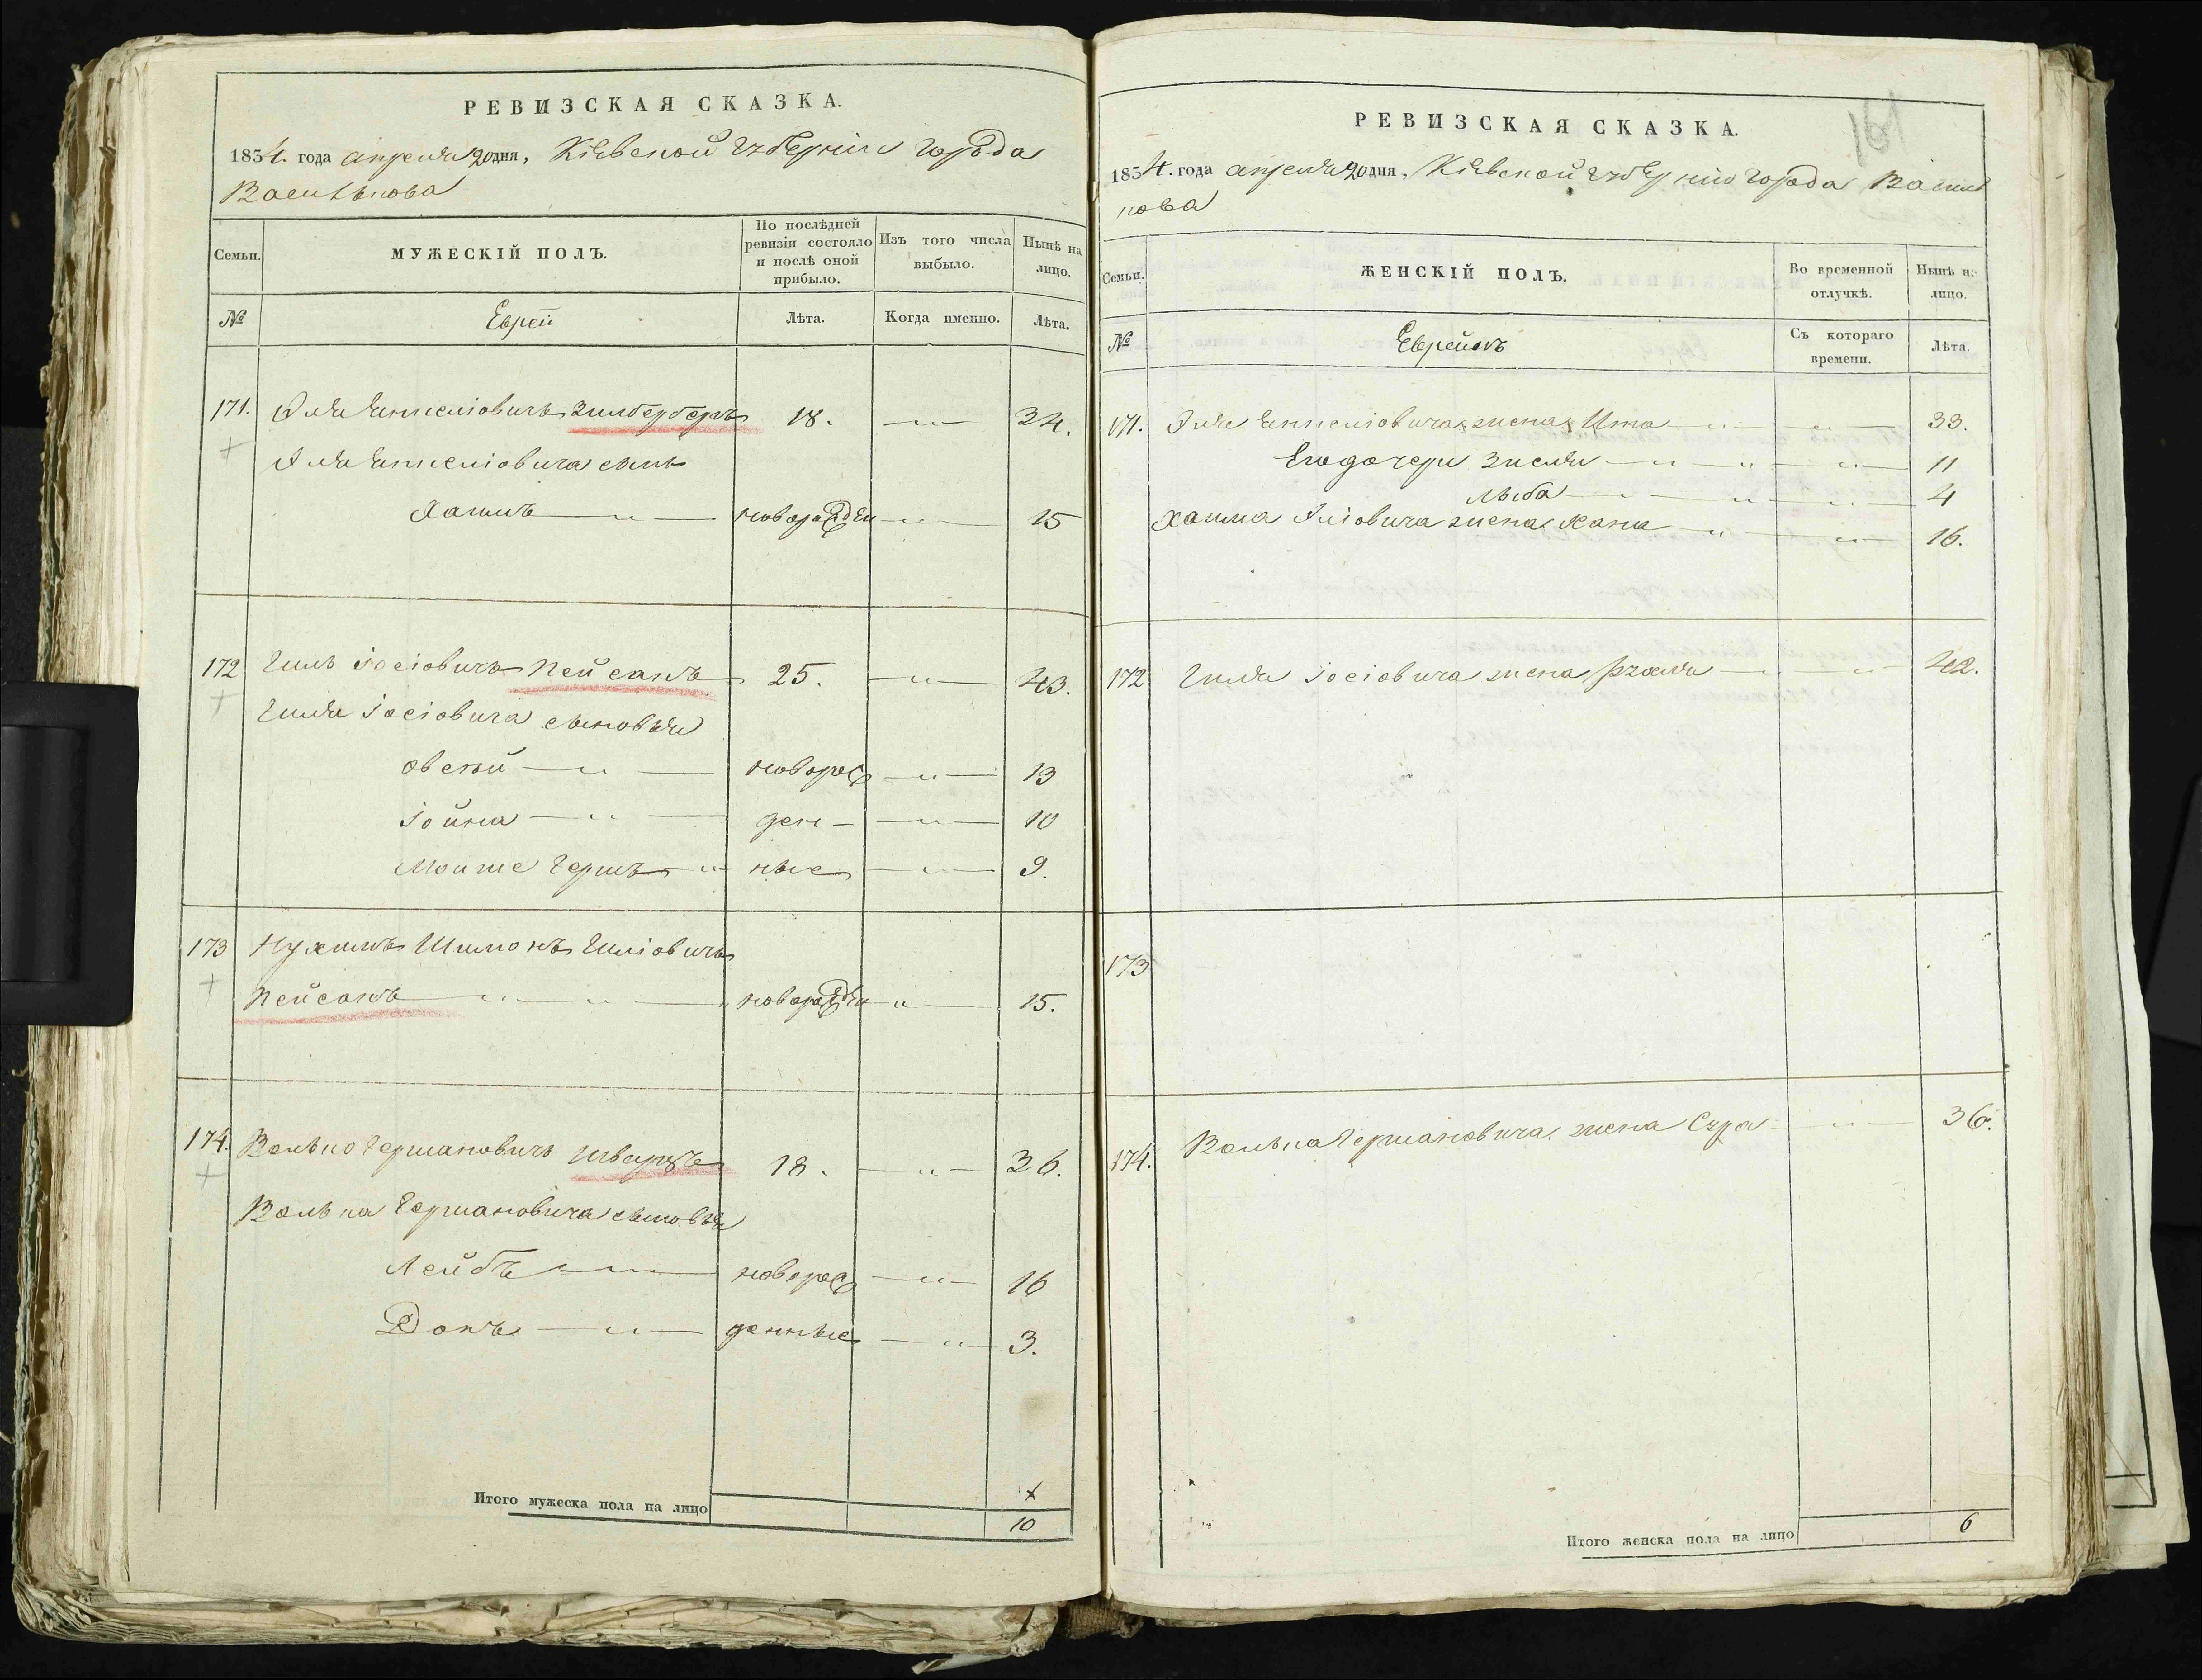 РЕВИЗСКАЯ СКАЗКА.
1854. года апреля 20 дня, Кіевской губерніи города
Василькова
Семьи.
МУЖЕСКІЙ ПОЛЪ.
По послѣдней ревизіи состояло и послѣ оной прибыло.
Изъ того числа выбыло.
Нынѣ на лицо.
№
Еврей
Лѣта.
Когда именно.
Лѣта.
171. Зилберберъ 18. — „ — 34.
сынъ
Хаимъ — „ — новорожден — „ — 15
172 Гиль Іосіовичъ Пейсахъ 25. — „ — 43.
Гиля Іосіовича сыновья
Овсей — „ — новорож — „ — 13
Іойна — „ — ден — — „ — 10
Мошко Гершъ — „ ные — „ — 9.
173 Нухимъ Шимонъ Гиліовичъ
Пейсахъ — „ — „ — новорожден — „ — 15.
174. Волько Германовичъ Шварцъ 18. — „ — 36.
Волька Германовича сыновья
Лейбъ — „ — новорож — „ — 16
Донъ — „ — денные — „ — 3.
Итого мужеска пола на лицо
10
161
РЕВИЗСКАЯ СКАЗКА.
1854. года апреля 20 дня, Кіевской губерніи города Василь
кова
Семьи.
ЖЕНСКІЙ ПОЛЪ.
Во временной отлучкѣ.
Нынѣ на лицо.
№
Еврейскъ
Съ котораго времени.
Лѣта.
171. жена Ита — „ — „ — 33.
Его дочери Зисля — „ — „ — „ — 11
Лыба — „ — „ — 4
Хаима Иліовича жена Хана — „ — „ — 16.
172 Гиля Іосіовича жена Рухля — „ — „ — 42.
173
174. Волька Германовича жена Сура — „ — 36.
Итого женска пола на лицо
6